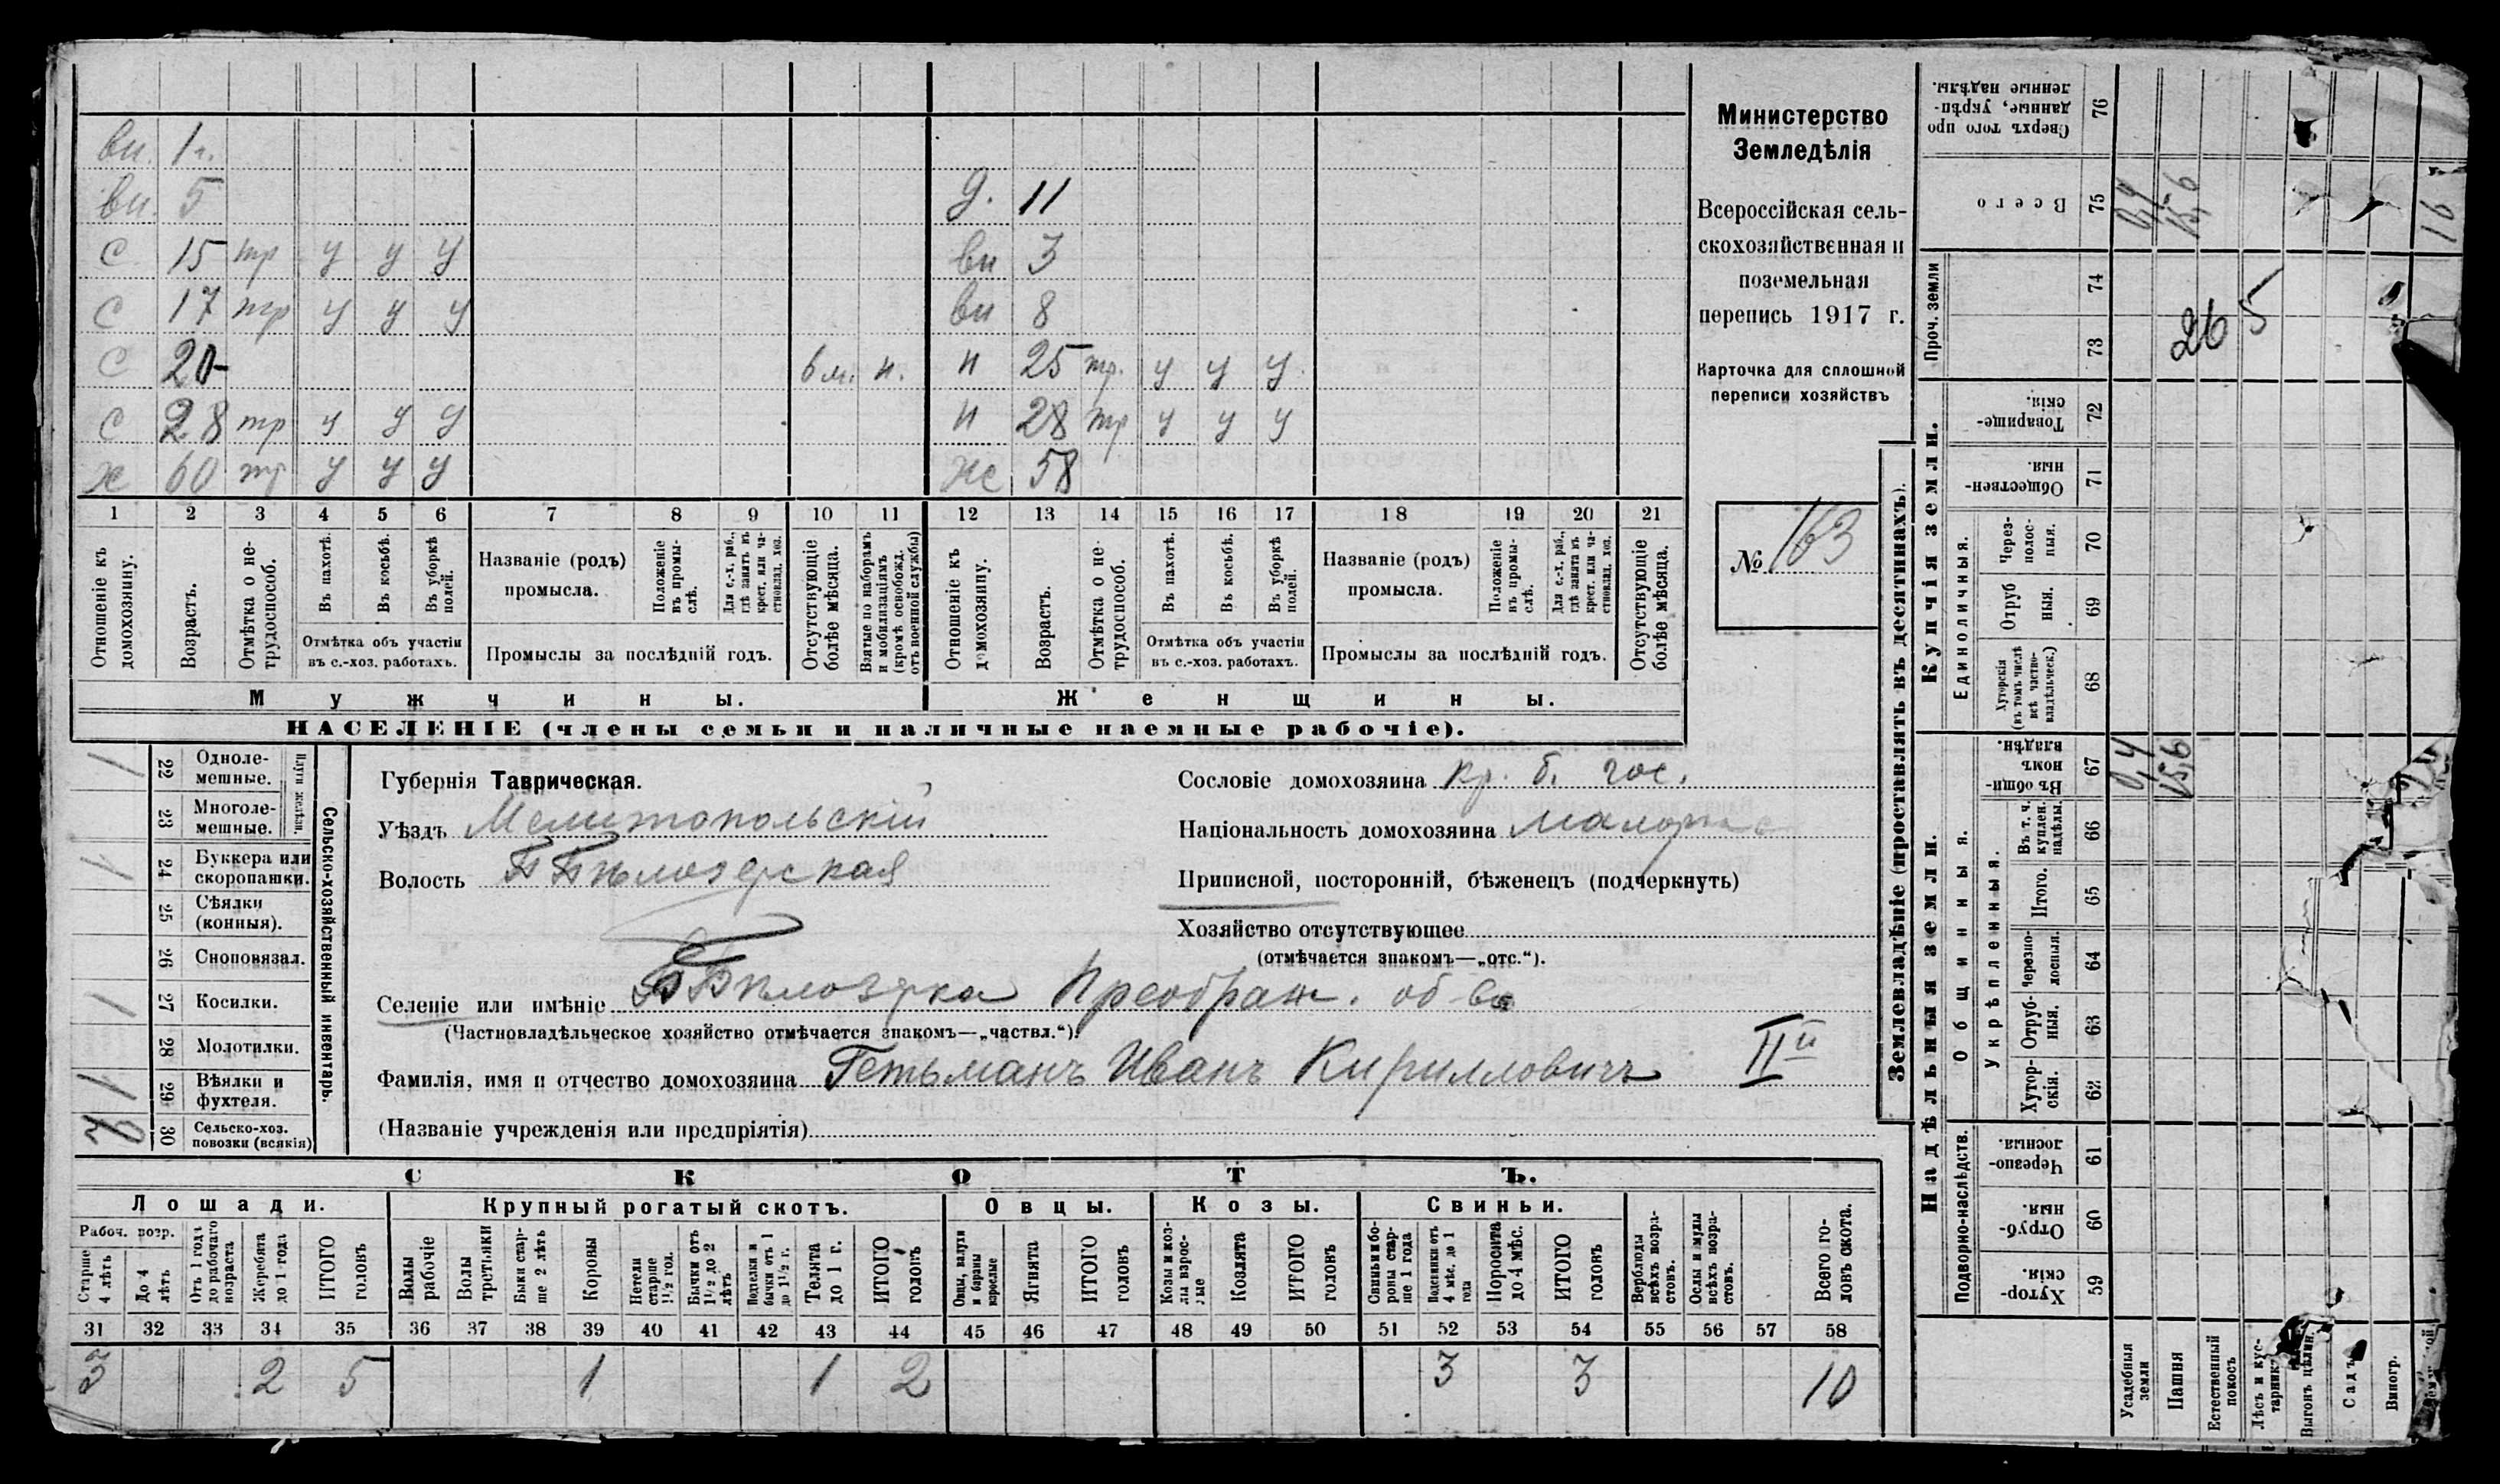 вн. 1 г.
вн. 5 д. 11
с 15 тр у у у вн 3
с 17 тр у у у вн 8
с 20 6 м. н. н 25 тр. у у у
с 28 тр у у у н 28 тр у у у
х 60 тр у у у ж 58
1 2 3 4 5 6 7 8 9 10 11 12 13 14 15 16 17 18 19 20 21
Отношеніе къ домохозяину.
Возрастъ.
Отмѣтка о не-трудоспособ.
Въ пахотѣ.
Въ косьбѣ.
Въ уборкѣ полей.
Отмѣтка объ участіи
въ с.-хоз. работахъ.
Названіе (родъ)
промысла.
Положеніе въ промы-слѣ.
Для с.-х. раб., гдѣ занятъ въ крест. или ча-стновлад. хоз.
Промыслы за послѣдній годъ.
Отсутствующіе болѣе мѣсяца.
Взятые по наборамъ и мобилизаціямъ (кромѣ освобожд. отъ военной службы)
Отношеніе къ домохозяину.
Возрастъ.
Отмѣтка о не-трудоспособ.
Въ пахотѣ.
Въ косьбѣ.
Въ уборкѣ полей.
Отмѣтка объ участіи
въ с.-хоз. работахъ.
Названіе (родъ)
промысла.
Положеніе въ промы-слѣ.
Для с.-х. раб., гдѣ занята въ крест. или ча-стновлад. хоз.
Промыслы за послѣдній годъ.
Отсутствующіе болѣе мѣсяца.
Мужчины.
Женщины.
НАСЕЛЕНІЕ (члены семьи и наличные наемные рабочіе).
Министерство
Земледѣлія
Всероссійская сель-
скохозяйственная и
поземельная
перепись 1917 г.
Карточка для сплошной
переписи хозяйствъ
№ 163
Сельско-хозяйственный инвентарь.
Плуги желѣзн.
1 22 Одноле-мешные.
23 Многоле-мешные.
1 24 Буккера или скоропашки.
25 Сѣялки (конныя).
26 Сноповязал.
1 27 Косилки.
28 Молотилки.
1 29 Вѣялки и фухтеля.
30 Сельско-хоз. повозки (всякія)
Губернія Таврическая.
Уѣздъ Мелитопольскій
Волость Б Бѣлозерская
Селеніе или имѣніе Б Бѣлозерка Преображ. об-ва
(Частновладѣльческое хозяйство отмѣчается знакомъ—„частвл.“).
Фамилія, имя и отчество домохозяина Гетьманъ Иванъ Кирилловичъ IIй
(Названіе учрежденія или предпріятія)
Сословіе домохозяина кр. б. гос.
Національность домохозяина малорос
Приписной, посторонній, бѣженецъ (подчеркнуть)
Хозяйство отсутствующее
(отмѣчается знакомъ—„отс.“).
СКОТЪ.
Лошади. Крупный рогатый скотъ. Овцы. Козы. Свиньи.
Рабоч. возр.
Старше 4 лѣтъ
До 4 лѣтъ
Отъ 1 года до рабочаго возраста
Жеребята до 1 года
ИТОГО головъ
Волы рабочіе
Волы третьяки
Быки стар-ше 2 лѣтъ
Коровы
Нетели старше 1½ год.
Бычки отъ 1½ до 2 лѣтъ
Подтелки и бычки отъ 1 до 1½ г.
Телята до 1 г.
ИТОГО головъ
Овцы, валухи и бараны взрослые
Ягнята
ИТОГО головъ
Козы и коз-лы взрос-лые
Козлята
ИТОГО головъ
Свиньи и бо-ровы стар-ше 1 года
Подсвинки отъ 4 мѣс. до 1 года
Поросята до 4 мѣс.
ИТОГО головъ
Верблюды всѣхъ возра-стовъ.
Ослы и мулы всѣхъ возра-стовъ.
Всего го-ловъ скота.
31 32 33 34 35 36 37 38 39 40 41 42 43 44 45 46 47 48 49 50 51 52 53 54 55 56 57 58
3 2 5 1 1 2 3 3 10
Землевладѣніе (проставлять въ десятинахъ).
Надѣльныя земли.
Подворно-наслѣдств.
Хутор-скія. 59
Отруб-ныя. 60
Черезпо-лосныя. 61
Общинныя.
Укрѣпленныя.
Хутор-скія. 62
Отруб-ныя. 63
Черезпо-лосныя. 64
Итого. 65
Въ т. ч. куплен. надѣлы. 66
Въ общи-номъ владѣн. 67
Купчія земли.
Единоличныя.
Хуторскія (въ томъ числѣ всѣ частно-владѣльческ.) 68
Отруб ныя. 69
Через-полос-ныя. 70
Обществен-ныя. 71
Товарище-скія. 72
Проч. земли
73 74
Всего 75
Сверхъ того про данные, укрѣп-ленные надѣлы. 76
Усадебныя земли 0,4 0,4
Пашня 15,6 15,6
Естественный покосъ
Лѣсъ и кус-тарникъ
Выгонъ цѣлин.
Садъ
Виногр.
16
265